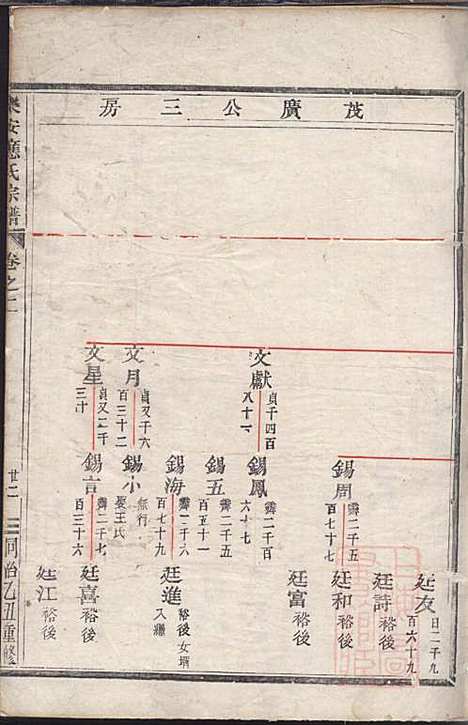 茂廣公三房
文獻
貞千四百
八十一
文月
貞又千六
百三十二
文星
貞又二千
三十
錫周
霽二千五
百七十七
錫鳳
霽二千百
六十七
錫五
霽二千五
百五十一
錫海
霽二千六
百七十九
錫小
無行
娶王氏
錫言
霽二千七
百三十六
廷友
日二千九
百六十九
廷詩
裕後
廷和
裕後
廷富
裕後
廷進
裕後女壻
入繼
廷喜
裕後
廷江
裕後
樂安應氏宗譜
卷之二
廿二
同治乙丑重修